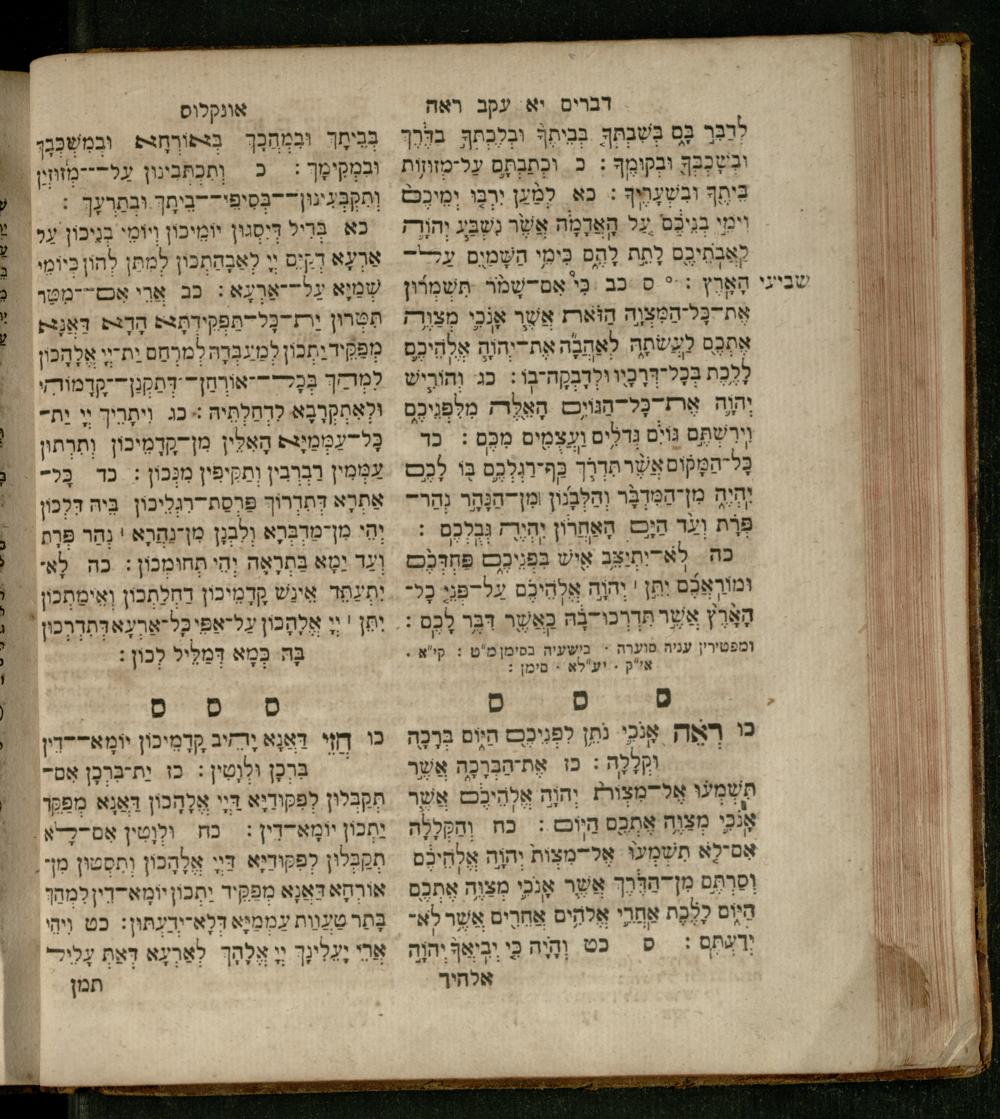 דברים יא עקב ראה
לְדַבֵּר בָּם בְּשִׁבְתְּךָ בְּבֵיתֶךָ וּבְלֶכְתְּךָ בַדֶּרֶךְ
וּבְשָׁכְבְּךָ וּבְקוּמֶךָ : כ וּכְתַבְתָּם עַל־מְזוּזוֹת
בֵּיתֶךָ וּבִשְׁעָרֶיךָ : כא לְמַעַן יִרְבּוּ יְמֵיכֶם
וִימֵי בְנֵיכֶם עַל הָאֲדָמָה אֲשֶׁר נִשְׁבַּע יְהוָה
לַאֲבֹתֵיכֶם לָתֵת לָהֶם כִּימֵי הַשָּׁמַיִם עַל־
שביעי הָאָרֶץ : ס כב כִּי אִם־שָׁמֹר תִּשְׁמְרוּן
אֶת־כָּל־הַמִּצְוָה הַזֹּאת אֲשֶׁר אָנֹכִי מְצַוֶּה
אֶתְכֶם לַעֲשֹׂתָהּ לְאַהֲבָה אֶת־יְהוָה אֱלֹהֵיכֶם
לָלֶכֶת בְּכָל־דְּרָכָיו וּלְדָבְקָה־בוֹ : כג וְהוֹרִישׁ
יְהוָה אֶת־כָּל־הַגּוֹיִם הָאֵלֶּה מִלִּפְנֵיכֶם
וִירִשְׁתֶּם גּוֹיִם גְּדֹלִים וַעֲצֻמִים מִכֶּם : כד
כָּל־הַמָּקוֹם אֲשֶׁר תִּדְרֹךְ כַּף־רַגְלְכֶם בּוֹ לָכֶם
יִהְיֶה מִן־הַמִּדְבָּר וְהַלְּבָנוֹן מִן־הַנָּהָר נְהַר־
פְּרָת וְעַד הַיָּם הָאַחֲרוֹן יִהְיֶה גְּבֻלְכֶם :
כה לֹא־יִתְיַצֵּב אִישׁ בִּפְנֵיכֶם פַּחְדְּכֶם
וּמוֹרַאֲכֶם יִתֵּן ׀ יְהוָה אֱלֹהֵיכֶם עַל־פְּנֵי כָל־
הָאָרֶץ אֲשֶׁר תִּדְרְכוּ־בָהּ כַּאֲשֶׁר דִּבֶּר לָכֶם :
ומפטירין עניה סוערה · בישעיה בסימן מ״ט : קי״א .
אי״ק · יע״לא · סימן :
ס ס ס
כו רְאֵה אָנֹכִי נֹתֵן לִפְנֵיכֶם הַיּוֹם בְּרָכָה
וּקְלָלָה : כז אֶת־הַבְּרָכָה אֲשֶׁר
תִּשְׁמְעוּ אֶל־מִצְוֹת יְהוָה אֱלֹהֵיכֶם אֲשֶׁר
אָנֹכִי מְצַוֶּה אֶתְכֶם הַיּוֹם : כח וְהַקְּלָלָה
אִם־לֹא תִשְׁמְעוּ אֶל־מִצְוֹת יְהוָה אֱלֹהֵיכֶם
וְסַרְתֶּם מִן־הַדֶּרֶךְ אֲשֶׁר אָנֹכִי מְצַוֶּה אֶתְכֶם
הַיּוֹם לָלֶכֶת אַחֲרֵי אֱלֹהִים אֲחֵרִים אֲשֶׁר לֹא־
יְדַעְתֶּם : ס כט וְהָיָה כִּי יְבִיאֲךָ יְהוָה
אלהיך
אונקלוס
בְּבֵיתָךְ וּבִמְהָכָךְ בְּאוֹרְחָא וּבְמִשְׁכְּבָךְ
וּבִמְקִימָךְ : כ וְתִכְתְּבִינוּן עַל־מְזוּזְיָן
וְתִקְבְּעִינוּן־בְּסִיפֵי־בֵיתָךְ וּבְתַרְעָךְ :
כא בְּדִיל דְּיִסְגּוּן יוֹמֵיכוֹן וְיוֹמֵי בְנֵיכוֹן עַל
אַרְעָא דְקַיִּים יְיָ לַאֲבָהַתְכוֹן לְמִתַּן לְהוֹן כְּיוֹמֵי
שְׁמַיָּא עַל־אַרְעָא : כב אֲרֵי אִם־מִטַּר
תִּטְּרוּן יַת־כָּל־תַּפְקֵידְתָּא הָדָא דַּאֲנָא
מְפַקֵּיד יַתְכוֹן לְמֶעְבְּדָהּ לְמִרְחַם יַת־יְיָ אֱלָהָכוֹן
לִמְהַךְ בְּכָל־אוֹרְחָן־דְּתַקְנָן־קֳדָמוֹהִי
וּלְאִתְקְרָבָא לְדַחַלְתֵּיהּ : כג וִיתָרֵיךְ יְיָ יַת־
כָּל־עַמְמַיָּא הָאִלֵּין מִן־קֳדָמֵיכוֹן וְתִרְתוּן
עַמְמִין רַבְרְבִין וְתַקִּיפִין מִנְּכוֹן : כד כָּל־
אַתְרָא דְּתִדְרוֹךְ פַּרְסַת־רִגְלֵיכוֹן בֵּיהּ דִּלְכוֹן
יְהֵי מִן־מַדְבְּרָא וְלִבְנָן מִן־נַהֲרָא ׀ נְהַר פְּרָת
וְעַד יַמָּא בַּתְרָאָה יְהֵי תְּחוּמְכוֹן : כה לָא־
יִתְעַתַּד אֵינַשׁ קֳדָמֵיכוֹן דַּחְלַתְכוֹן וְאֵימַתְכוֹן
יִתֵּן ׀ יְיָ אֱלָהָכוֹן עַל־אַפֵּי כָל־אַרְעָא דְּתִדְרְכוּן
בָּהּ כְּמָא דְּמַלֵּיל לְכוֹן :
ס ס ס
כו חֲזֵי דַּאֲנָא יָהֵיב קֳדָמֵיכוֹן יוֹמָא־דֵין
בִּרְכָן וּלְוָטִין : כז יַת־בִּרְכָן אִם־
תְּקַבְּלוּן לְפִקּוּדַיָּא דַּיְיָ אֱלָהָכוֹן דַּאֲנָא מְפַקֵּד
יַתְכוֹן יוֹמָא־דֵין : כח וּלְוָטִין אִם־לָא
תְקַבְּלוּן לְפִקּוּדַיָּא דַּיְיָ אֱלָהָכוֹן וְתִסְטוּן מִן־
אוֹרְחָא דַּאֲנָא מְפַקֵּיד יַתְכוֹן יוֹמָא־דֵין לִמְהַךְ
בָּתַר טַעֲוַות עַמְמַיָּא דְּלָא־יְדַעְתּוּן : כט וִיהֵי
אֲרֵי יָעֵלִינָךְ יְיָ אֱלָהָךְ לְאַרְעָא דְּאַתְּ עָלֵיל
תמן